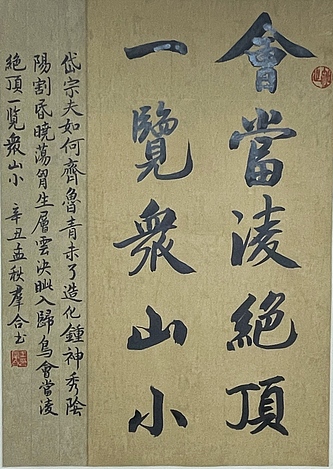 會當淩絕頂
一覽衆山小
岱宗夫如何齊魯青未了造化鍾神秀陰
陽割昏曉蕩胷生層雲決眥入歸鳥會當淩
絕頂一覽衆山小 辛丑孟秋羣合书